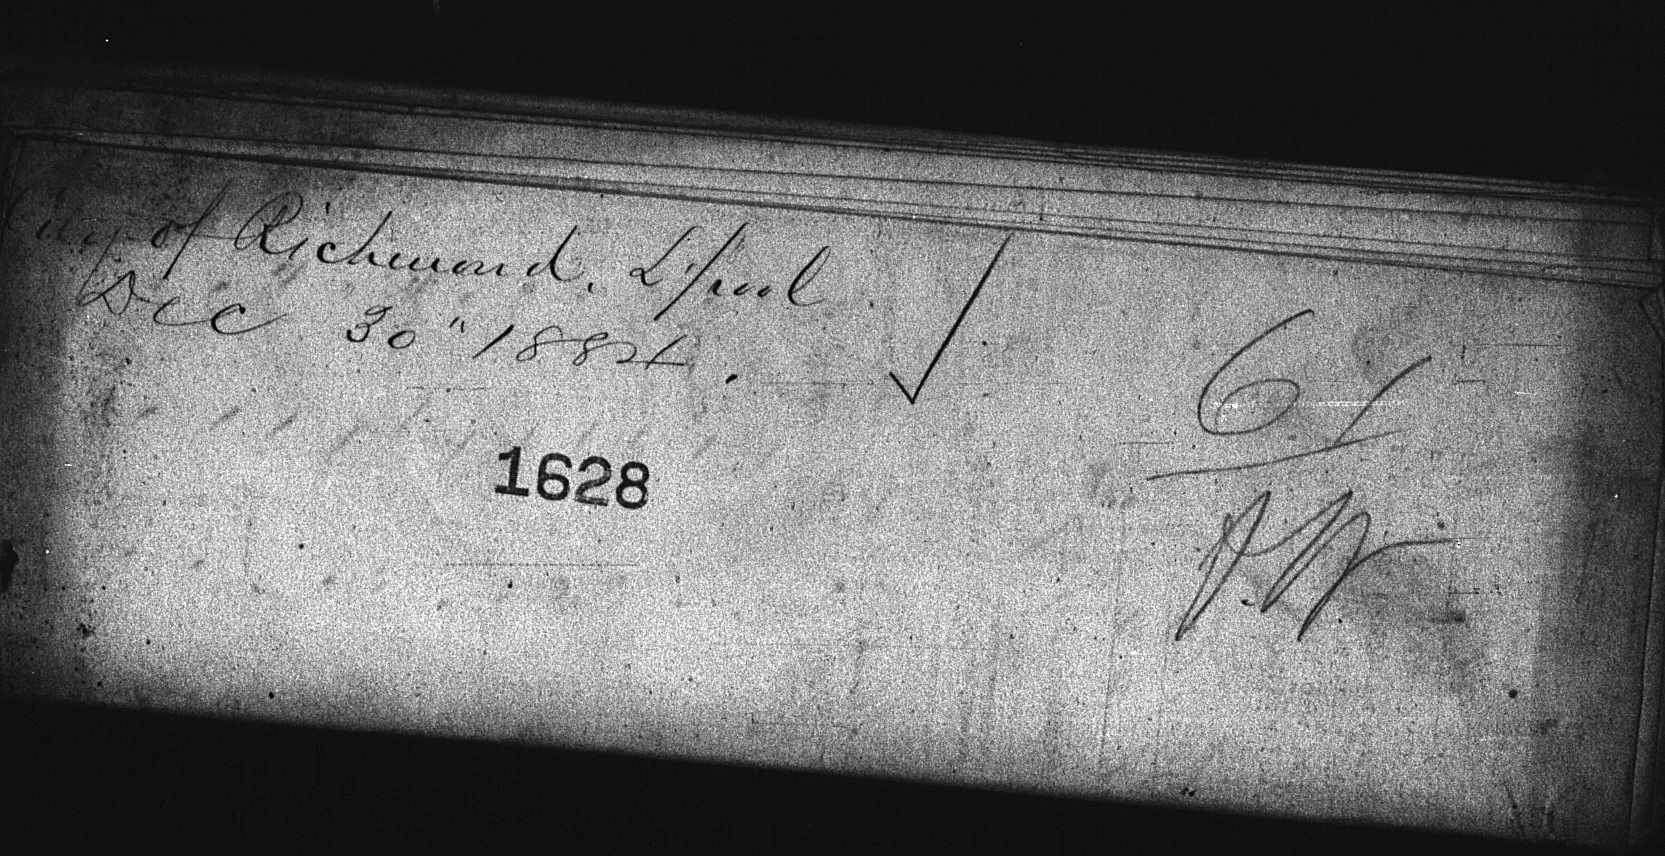 City of Richmond. L'pool.
Dec 30" 1884.
1628
61